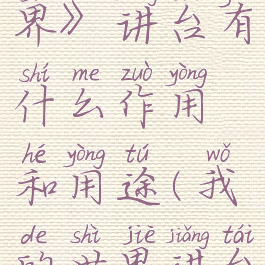 界》讲台有
shí me zuò yòng
什么作用
hé yòng tú wǒ
和用途(我
de shì jiè jiǎng tái
的世界讲台